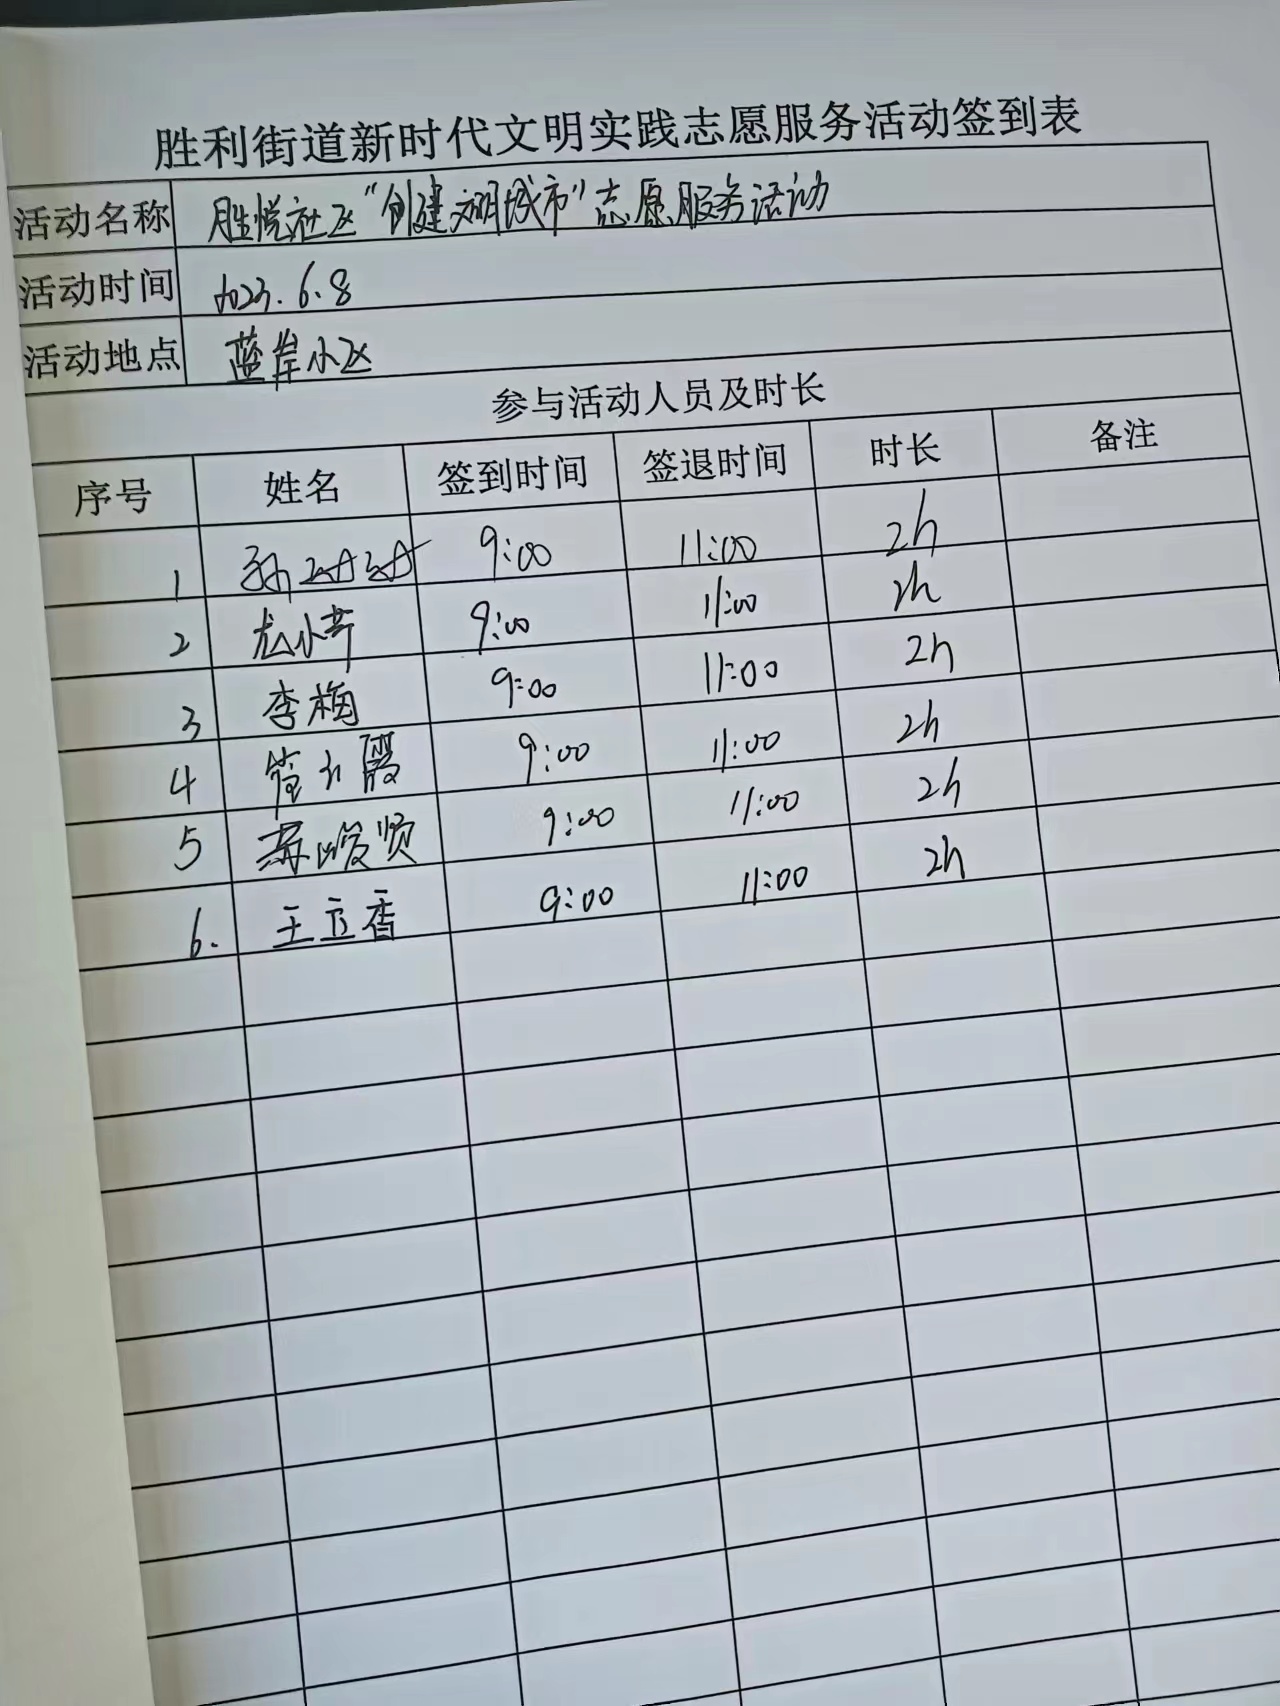 胜利街道新时代文明实践志愿服务活动签到表
活动名称 胜悦社区“创建文明城市”志愿服务活动
活动时间 2023.6.8
活动地点 蓝岸小区
参与活动人员及时长
序号 姓名 签到时间 签退时间 时长 备注
1 孙 9:00 11:00 2h
2 尤小芹 9:00 11:00 2h
3 李梅 9:00 11:00 2h
4 管 霞 9:00 11:00 2h
5 苏峻贤 9:00 11:00 2h
6. 王立香 9:00 11:00 2h